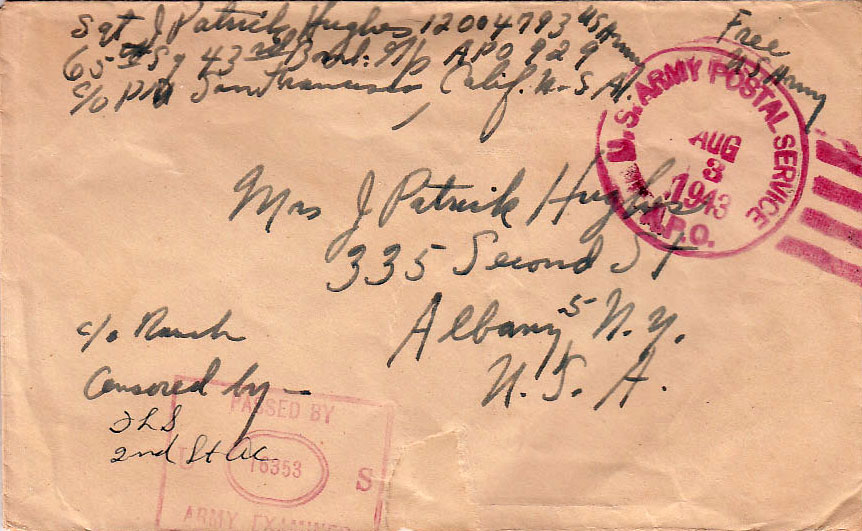 Sgt J Patrick Hughes 12004793 US Army
65th Sq 43rd Bomb. Grp APO 929
c/o PM San Francisco Calif. U.S.A.
Free
US Army
U.S. ARMY POSTAL SERVICE
AUG
3
1943
A.P.O.
Mrs J Patrick Hughes
335 Second St
Albany 5 N.Y.
U.S.A.
c/o
Censored by —
2nd Lt AC
PASSED BY
U 16353 S
ARMY EXAMINER